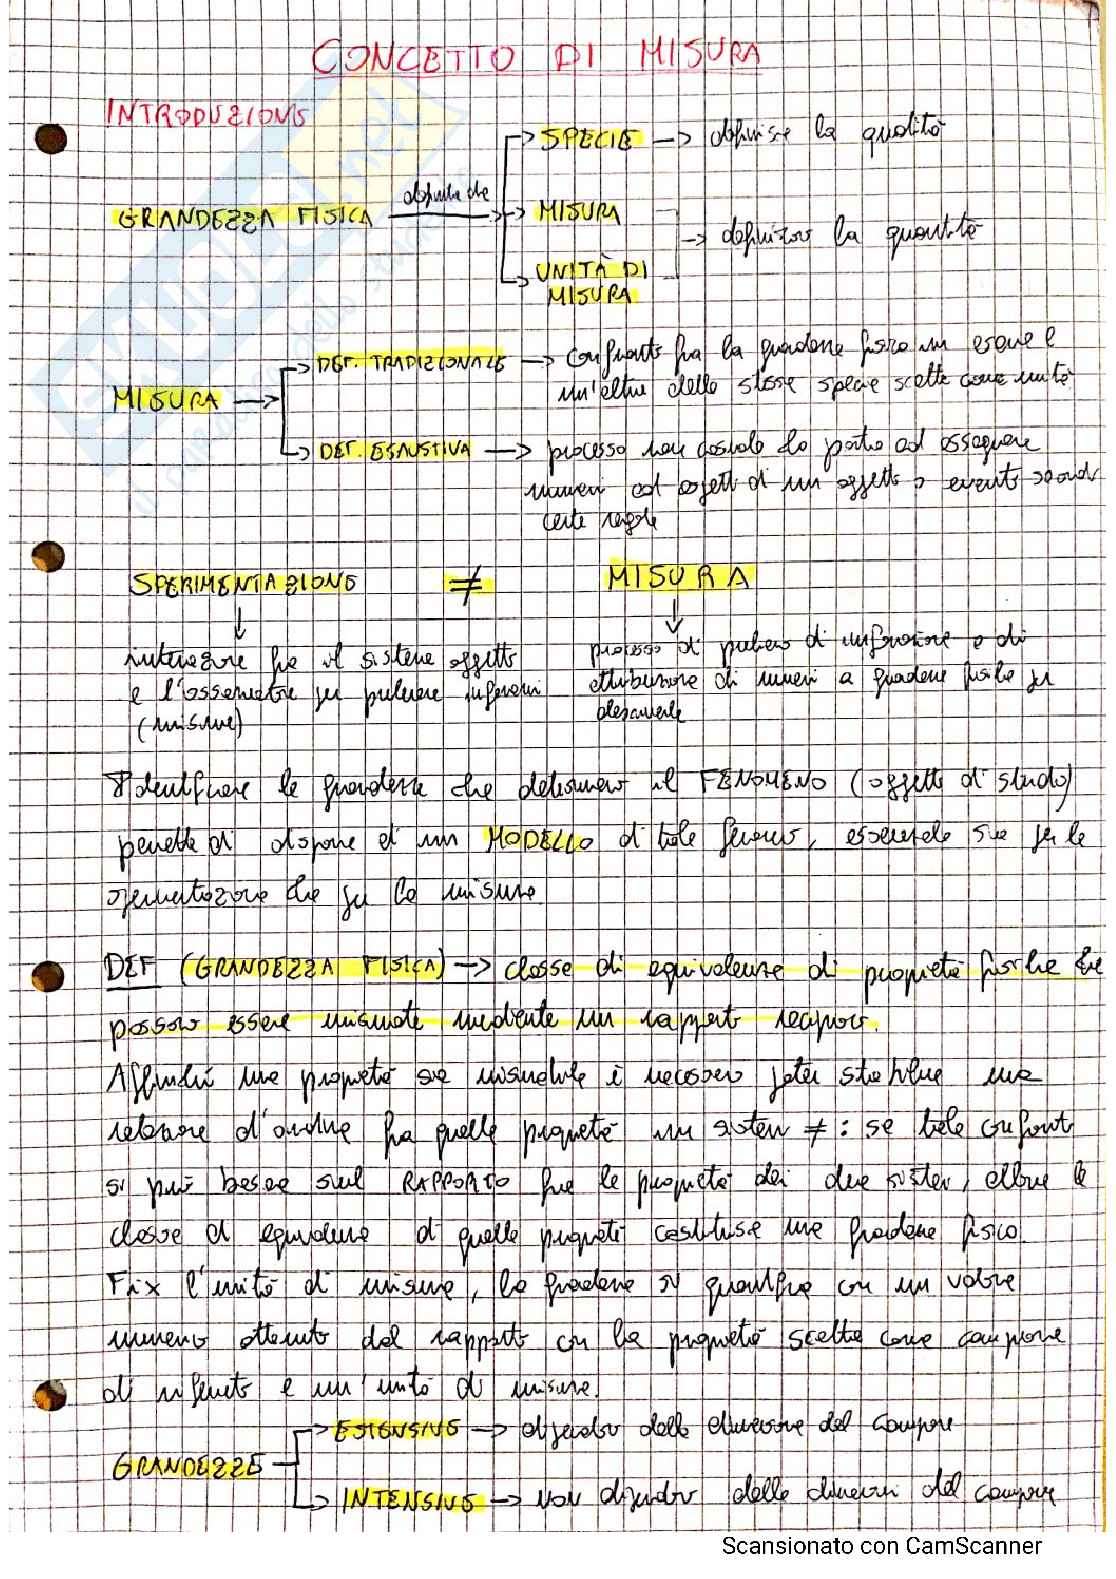 CONCETTO DI MISURA
INTRODUZIONE
GRANDEZZA FISICA definita da
SPECIE → definisce la qualità
MISURA
UNITÀ DI MISURA
→ definiscono la quantità
MISURA →
DEF. TRADIZIONALE → confronto fra la grandezza fisica in esame e
un'altra della stessa specie scelta come unità
DEF. ESAUSTIVA → processo non casuale che porta ad assegnare
numeri ad aspetti di un oggetto o evento secondo
certe regole
SPERIMENTAZIONE ≠ MISURA
interazione fra il sistema oggetto
e l'osservatore per prelevare informazioni
(misure)
processo di prelievo di informazione o di
attribuzione di numeri a grandezze fisiche per
descriverle
Identificare le grandezze che determinano il FENOMENO (oggetto di studio)
permette di disporre di un MODELLO di tale fenomeno, essenziale sia per la
sperimentazione che per la misura.
DEF (GRANDEZZA FISICA) → classe di equivalenza di proprietà fisiche che
possono essere misurate mediante un rapporto reciproco.
Affinché una proprietà sia misurabile è necessario poter stabilire una
relazione d'ordine fra quelle proprietà in sistemi ≠ : se tale confronto
si può basare sul RAPPORTO fra le proprietà dei due sistemi, allora la
classe di equivalenza di quelle proprietà costituisce una grandezza fisica.
Fix l'unità di misura, la grandezza si quantifica con un valore
numerico ottenuto dal rapporto con la proprietà scelta come campione
di riferimento e un'unità di misura.
GRANDEZZE
ESTENSIVE → dipendono dalla dimensione del campione
INTENSIVE → non dipendono dalle dimensioni del campione
Scansionato con CamScanner